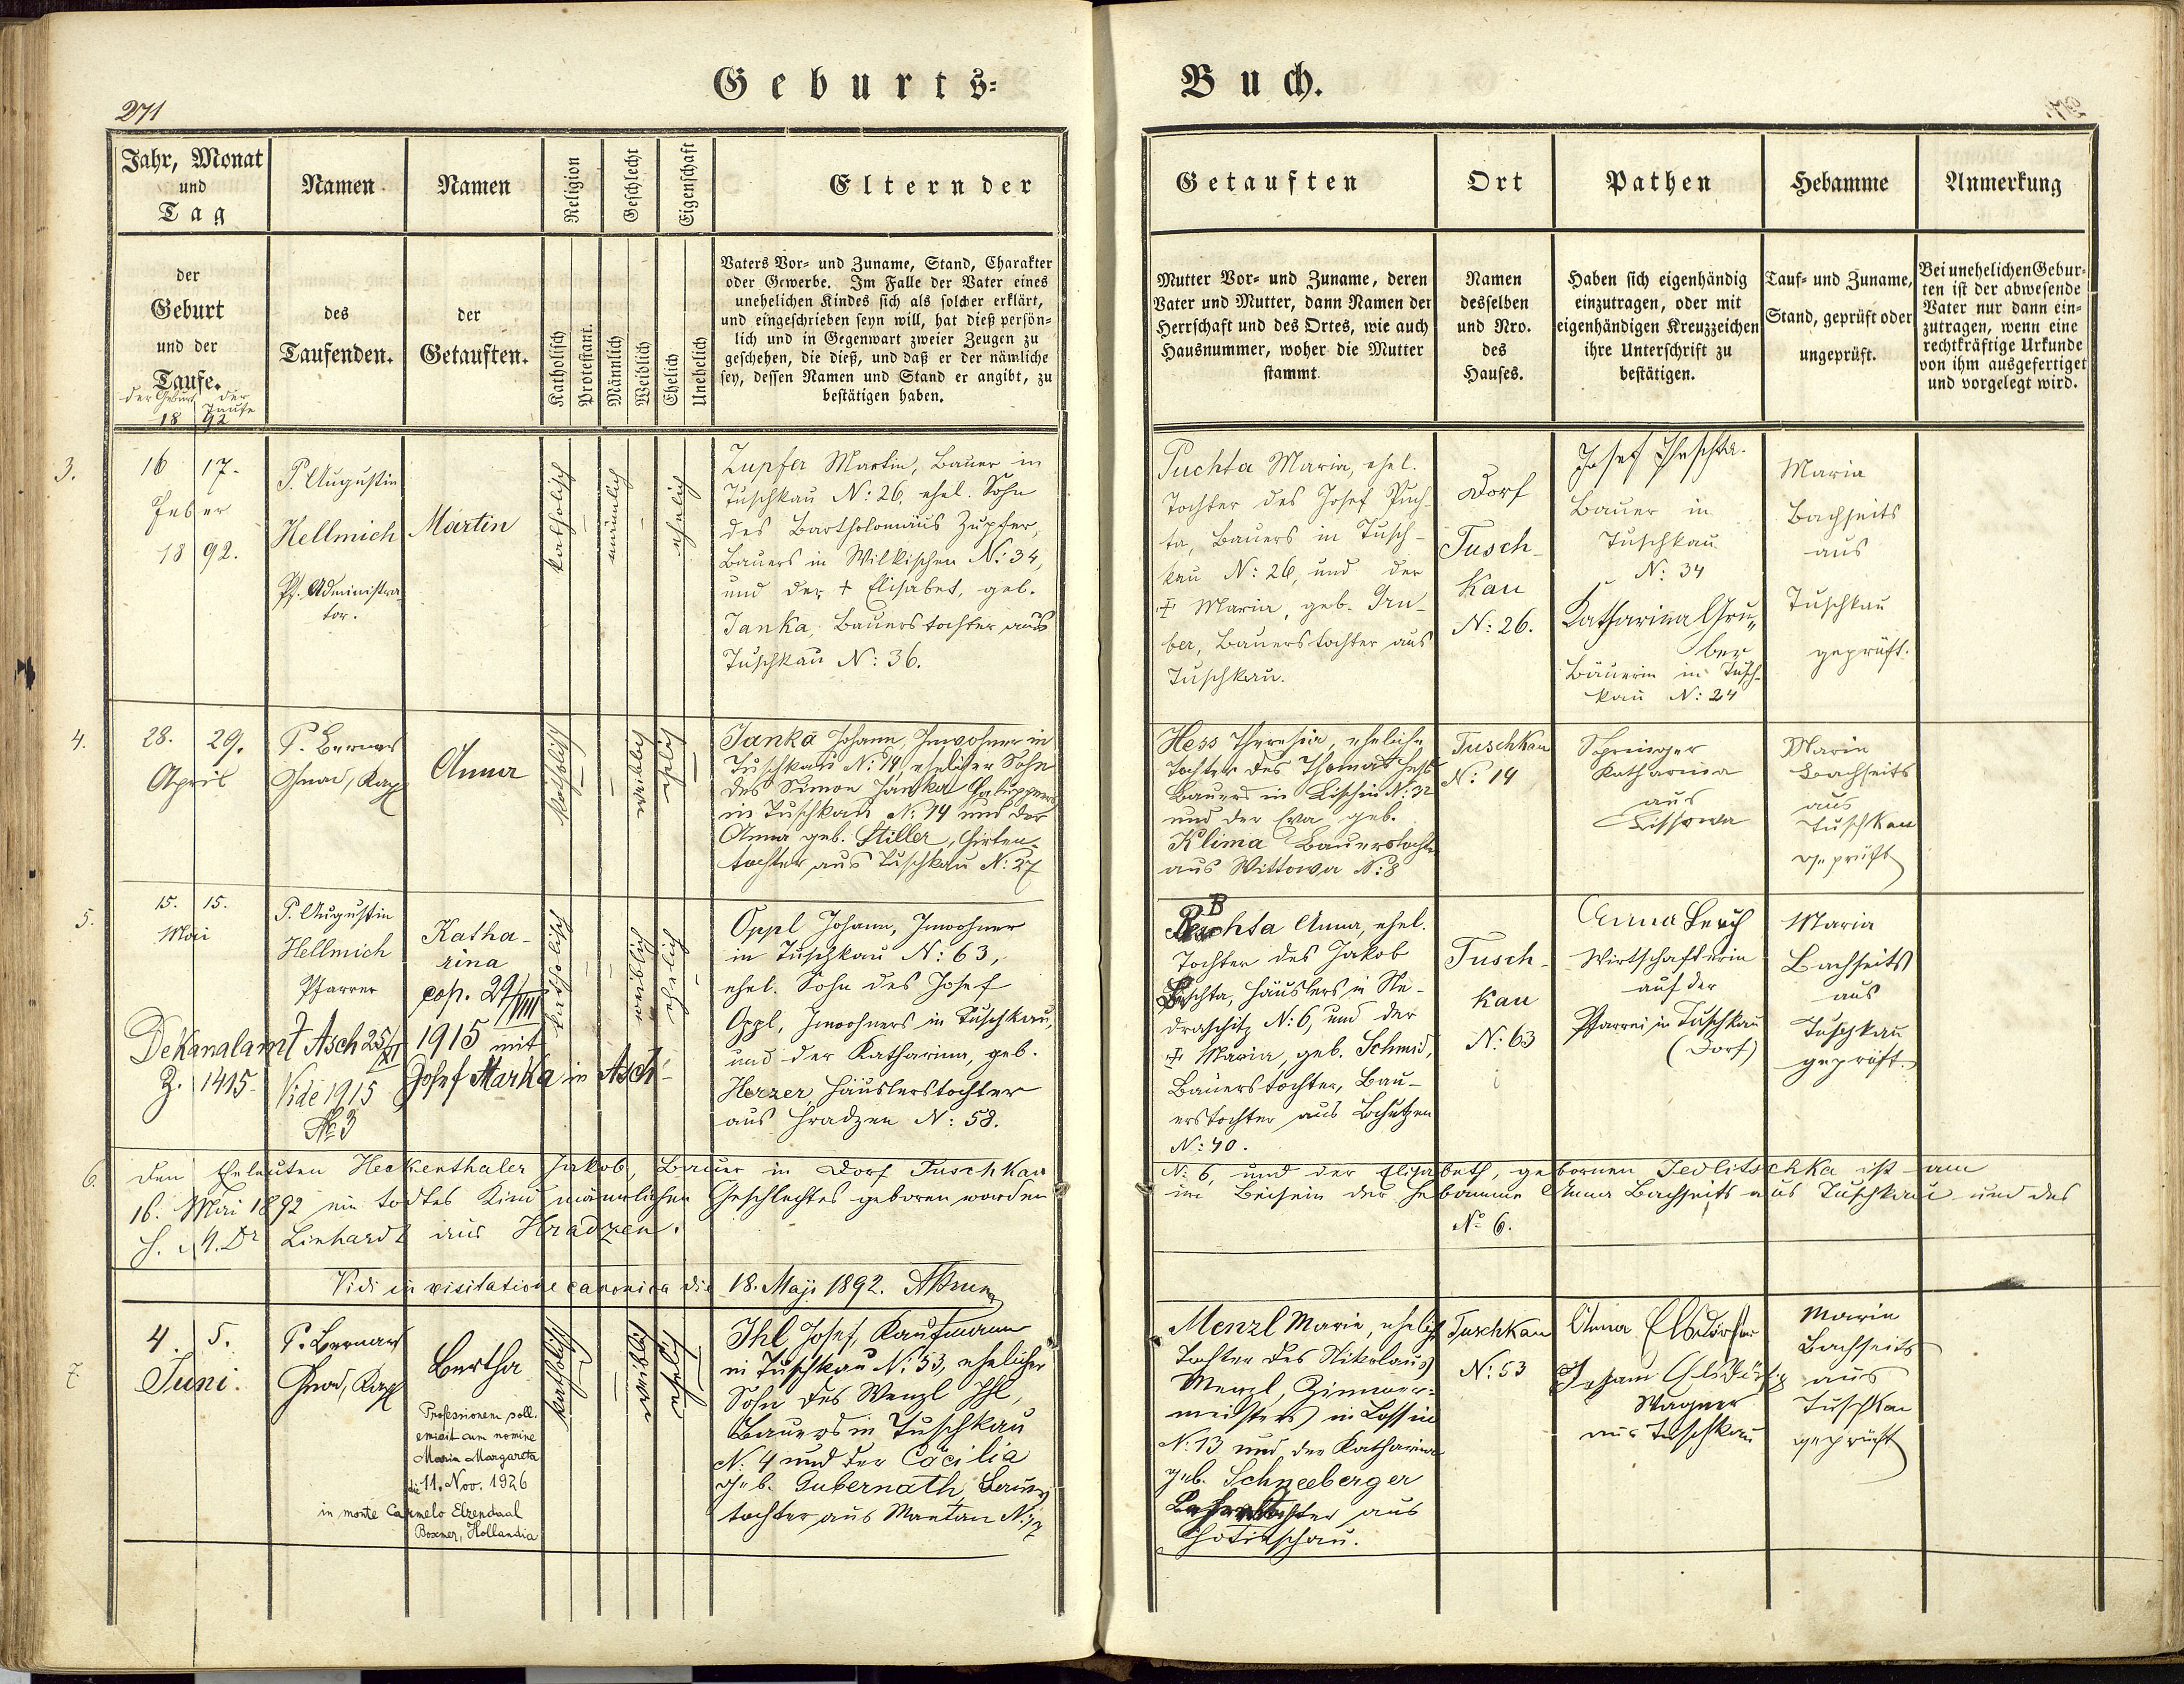 Geburts-
Buch.
271
Jahr, Monat
und
Tag
Namen
Namen
Religion
Geschlecht
Eigenschaft
Eltern der
Getauften
Ort
Pathen
Hebamme
Anmerkung
der
Geburt
und der
Taufe.
der Geburt der Taufe
18 92
des
Taufenden.
der
Getauften.
Katholisch
Protestant.
Männlich
Weiblich
Ehelich
Unehelich
Vaters Vor- und Zuname, Stand, Charakter
oder Gewerbe. Im Falle der Vater eines
unehelichen Kindes sich als solcher erklärt,
und eingeschrieben seyn will, hat dieß persön-
lich und in Gegenwart zweier Zeugen zu
geschehen, die dieß, und daß er der nämliche
sey, dessen Namen und Stand er angibt, zu
bestätigen haben.
Mutter Vor- und Zuname, deren
Vater und Mutter, dann Namen der
Herrschaft und des Ortes, wie auch
Hausnummer, woher die Mutter
stammt.
Namen
desselben
und Nro.
des
Hauses.
Haben sich eigenhändig
einzutragen, oder mit
eigenhändigen Kreuzzeichen
ihre Unterschrift zu
bestätigen.
Tauf- und Zuname,
Stand, geprüft oder
ungeprüft.
Bei unehelichen Gebur-
ten ist der abwesende
Vater nur dann ein-
zutragen, wenn eine
rechtkräftige Urkunde
von ihm ausgefertiget
und vorgelegt wird.
3.
16 17.
Feber
18 92.
P. Augustin
Hellmich
Pf. Administra-
tor.
Martin
katholisch
männlich
ehelich
Zupfer Martin, Bauer in
Tuschkau N: 26, ehel. Sohn
des Bartholomäus Zupfer,
Bauers in Wilkischen N: 34,
und der + Elisabet, geb.
Janka, Bauerstochter aus
Tuschkau N: 36.
Puchta Maria, ehel.
Tochter des Josef Puch-
ta, Bauers in Tusch-
kau N: 26, und der
+ Maria, geb. Gru-
ber, Bauerstochter aus
Tuschkau.
Dorf
Tusch-
kau
N: 26.
Josef
Bauer in
Tuschkau
N: 34
Katharina Gru-
ber
Bäuerin in Tusch-
kau N: 24
Maria
Bachseits
aus
Tuschkau
geprüft.
4.
28. 29.
April
P. Bernard
Gnad, Kapl
Anna
katholisch
weiblich
ehelich
Janka Johann, Inwohner in
Tuschkau N: 14, ehelicher Sohn
des Simon Janka Chaluppners
in Tuschkau N: 14 und der
Anna geb. Stiller, Hirten-
tochter aus Tuschkau N: 27
Hess Theresia, eheliche
Tochter des Thomas Hess
Bauers in Lischin N: 32
und der Eva geb.
Klima Bauerstochter
aus Wittowa N: 8
Tuschkau
N: 14
Springer
Katharina
aus
Lissowa
Maria
Bachseits
aus
Tuschkau
geprüft
5.
15. 15.
Mai
P. Augustin
Hellmich
Pfarrer
Katha-
rina
cop. 29/VIII
1915 mit
Josef Marka in Asch
Dekanalamt Asch 25/XI
Z. 1415.
Vide 1915
No 3
katholisch
weiblich
ehelich
Oppl Johann, Inwohner
in Tuschkau N: 63,
ehel. Sohn des Josef
Oppl, Inwohners in Tuschkau,
und der Katharina, geb.
Herzer, Häuslerstochter
aus Hradzen N: 58.
Anna, ehel.
Tochter des Jakob
Häuslers in Ne-
draschitz N: 6, und der
+ Maria, geb. Schmid,
Bauerstochter, Bau-
erstochter aus
N: 40.
Tusch-
kau
N: 63
Anna Lerch
Wirtschafterin
auf der
Pfarrei in Tuschkau
(Dorf)
Maria
Bachseits
aus
Tuschkau
geprüft.
6.
Den Eheleuten Heckenthaler Jakob, Bauer in Dorf Tuschkau N: 6, und der Elisabeth, gebornen Jedlitschka ist am
16. Mai 1892 ein todtes Kind männlichen Geschlechtes geboren worden im Beisein der Hebamme Anna Bachseits aus Tuschkau und des
H. M. Dr Linhardt aus Hradzen.
No 6.
Vidi in visitatione canonica die 18. Maji 1892.
7.
4. 5.
Juni.
P. Bernard
Gnad, Kapl
Bertha
Professionem soll.
emisit cum nomine
Maria Margareta
die 11. Nov. 1926
in monte Carmelo Elzendaal
Boxmer, Hollandia
katholisch
weiblich
ehelich
Ihl Josef, Kaufmann
in Tuschkau N: 53, ehelicher
Sohn des Wenzl Ihl,
Bauers in Tuschkau
N: 4 und der Cäcilia
geb. Gubernath, Bauers-
tochter aus Mantau N: 17
Menzl Maria, eheliche
Tochter des Nikolaus
Menzl, Zimmer-
meisters in Lossin
N: 13 und der Katharina
geb. Schneeberger
aus
Chotieschau.
Tuschkau
N: 53
Anna
Johann
Wagner
aus Tuschkau
Maria
Bachseits
aus
Tuschkau
geprüft